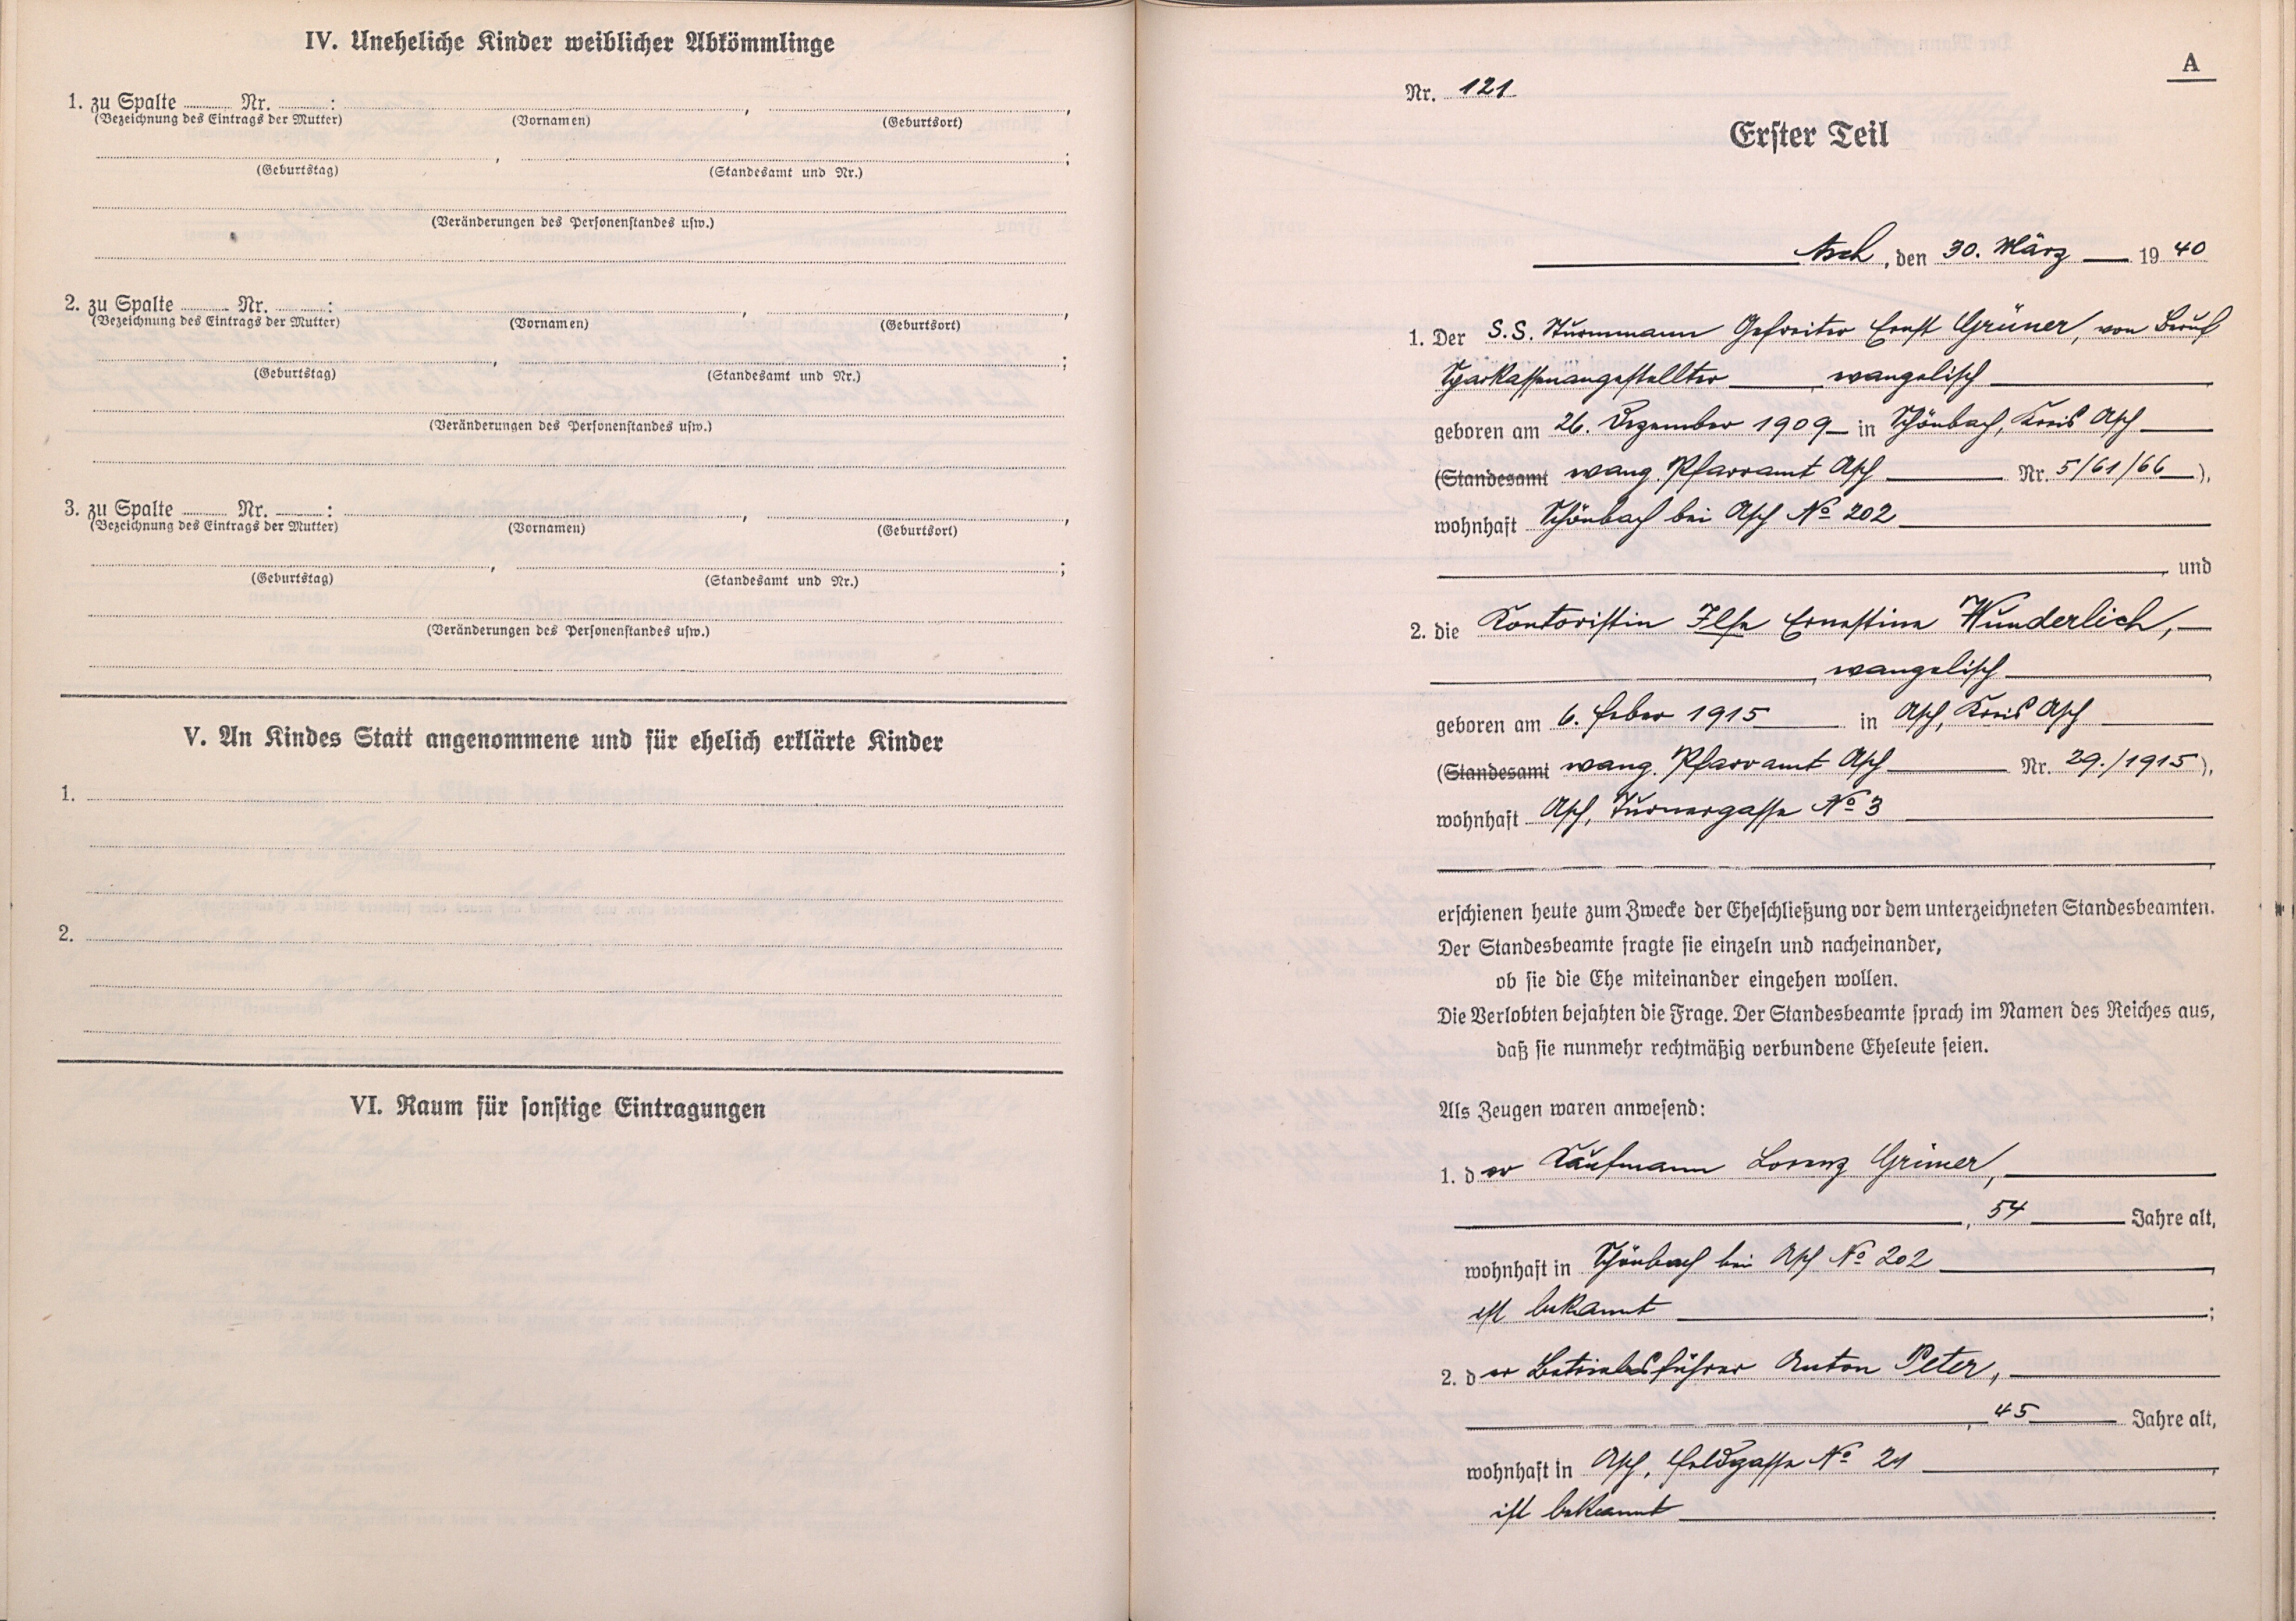 IV. Uneheliche Kinder weiblicher Abkömmlinge
1. zu Spalte Nr. : , ,
(Bezeichnung des Eintrags der Mutter) (Vornamen) (Geburtsort)
, ;
(Geburtstag) (Standesamt und Nr.)
(Veränderungen des Personenstandes usw.)
2. zu Spalte Nr. : , ,
(Bezeichnung des Eintrags der Mutter) (Vornamen) (Geburtsort)
, ;
(Geburtstag) (Standesamt und Nr.)
(Veränderungen des Personenstandes usw.)
3. zu Spalte Nr. : , ,
(Bezeichnung des Eintrags der Mutter) (Vornamen) (Geburtsort)
, ;
(Geburtstag) (Standesamt und Nr.)
(Veränderungen des Personenstandes usw.)
V. An Kindes Statt angenommene und für ehelich erklärte Kinder
1.
2.
VI. Raum für sonstige Eintragungen
A
Nr. 121
Erster Teil
Asch, den 30. März 1940
1. Der S.S. Sturmmann Gefreiter Ernst Grüner, von Beruf
Sparkassenangestellter, evangelisch
geboren am 26. Dezember 1909 in Schönbach, Kreis Asch
(Standesamt evang. Pfarramt Asch Nr. 5/61/66),
wohnhaft Schönbach bei Asch No 202
, und
2. die Kontoristin Ilse Ernestine Wunderlich,
, evangelisch
geboren am 6. Feber 1915 in Asch, Kreis Asch
(Standesamt evang. Pfarramt Asch Nr. 29./1915),
wohnhaft Asch, Turnergasse No 3
erschienen heute zum Zwecke der Eheschließung vor dem unterzeichneten Standesbeamten.
Der Standesbeamte fragte sie einzeln und nacheinander,
ob sie die Ehe miteinander eingehen wollen.
Die Verlobten bejahten die Frage. Der Standesbeamte sprach im Namen des Reiches aus,
daß sie nunmehr rechtmäßig verbundene Eheleute seien.
Als Zeugen waren anwesend:
1. der Kaufmann Lorenz Grüner,
, 54 Jahre alt,
wohnhaft in Schönbach bei Asch No 202
ist bekannt ;
2. der Betriebsführer Anton Peter,
, 45 Jahre alt,
wohnhaft in Asch, Feldgasse No 21
ist bekannt .